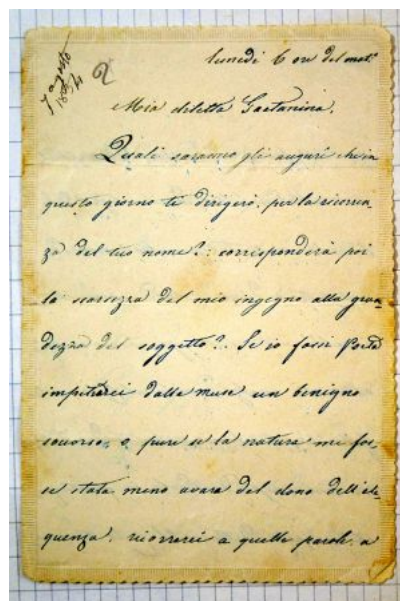 7 agosto
1854
2
Lunedì 6 ore del matt.º
Mia diletta Gaetanina.
Quali saranno gli auguri che in
questo giorno te dirigerò, per la ricorren-
za del tuo nome?: corrisponderà poi
la scarsezza del mio ingegno alla gran-
dezza del soggetto?. Se io fossi Poeta
impetrerei dalle muse un benigno
soccorso, o pure se la natura mi fos-
se stata meno avara del dono dell'elo-
quenza. ricorrerei a quelle parole. a